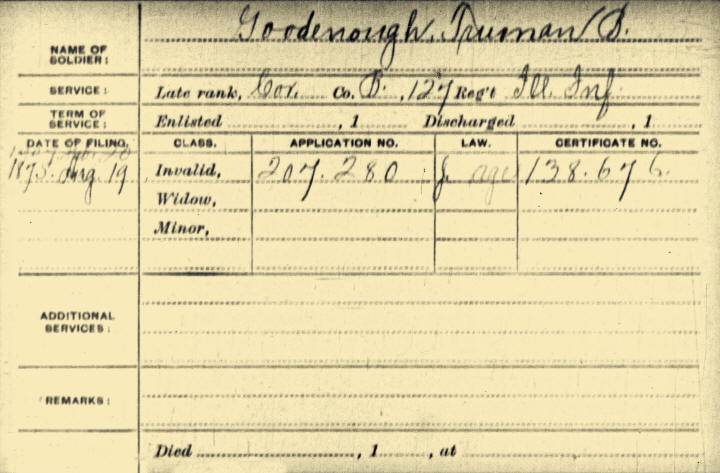 Goodenough, Truman B.
NAME OF SOLDIER:
SERVICE: Late rank, Cor. Co. B., 127 Reg't Ill. Inf.
TERM OF SERVICE: Enlisted , 1 Discharged , 1
DATE OF FILING. CLASS. APPLICATION NO. LAW. CERTIFICATE NO.
1875. Aug. 19 Invalid, 207.280 138.676.
Widow,
Minor,
ADDITIONAL SERVICES:
REMARKS:
Died , 1 , at